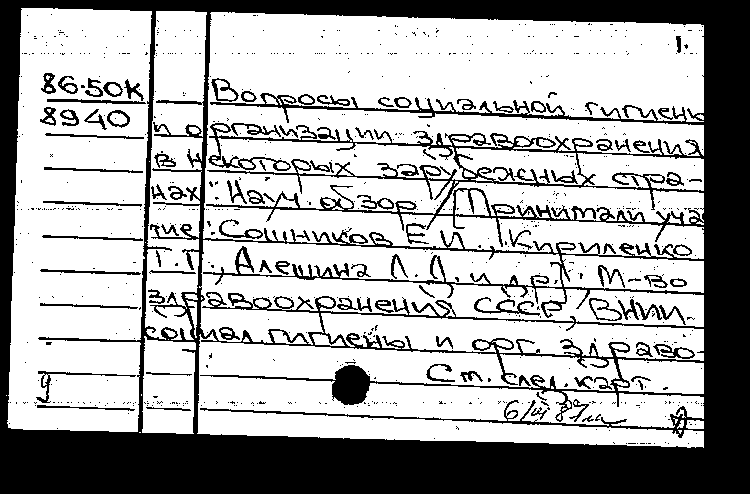 1.
86-50К Вопросы социальной гигиены
8940 и организации здравоохранения
в некоторых зарубежных стра-
нах: Науч. обзор / [Принимали учас
тие: Сошников Е.И., Кириленко
Т.Г., Алешина Л.Д. и др.]; М-во
здравоохранения СССР, ВНИИ
социал. гигиены и орг. здраво-
См. след. карт.